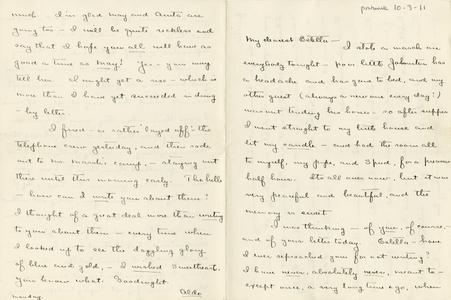 much. I'm glad May and Anita are
going too - I will be quite reckless and
say that I hope you all will have as
good a time as May! Yes - you may
tell her. I might get a rise - which is
more than I have yet succeeded in doing
- by letter.
I fired - or rather "layed off" the
telephone crew yesterday, and then rode
out to Mr. Marsh's camp, - staying out
there until this morning early. The hills
- how can I write you about them?
I thought of a great deal more than writing
to you about them - every time when
I looked up to see the dazzling glory
of blue and gold, - I wished sweetheart,
you know what. Goodnight.
Aldo
Monday.
postmark 10-3-11
My dearest Estella -
I stole a march on
everybody tonight - poor little Johnston has
a headache and has gone to bed, and my
other guest (always a new one every day!)
was out tending his horse - so after supper
I went straight to my little house and
lit my candle - and had the room all
to myself, my pipe, and Spud, for a precious
half hour. Its all over now, but it was
very peaceful and beautiful, and the
memory is sweet
I was thinking - of you, of course, -
and of your letter today. Estella - have
I ever reproached you for not writing?
I have never, absolutely never, meant to -
except once, a very long time ago, when